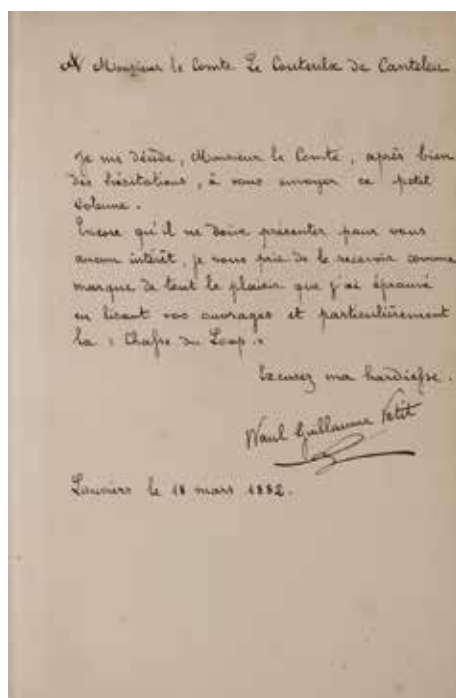 A Monsieur le Comte Le Couteulx de Canteleu
Je me décide, Monsieur le Comte, après bien
des hésitations, à vous envoyer ce petit
volume.
Encore qu'il ne doive présenter pour vous
aucun intérêt, je vous prie de le recevoir comme
marque de tout le plaisir que j'ai éprouvé
en lisant vos ouvrages et particulièrement
la "Chasse du Loup."
Excusez ma hardiesse.
Paul Guillaume Petit
Louviers le 18 mars 1882.